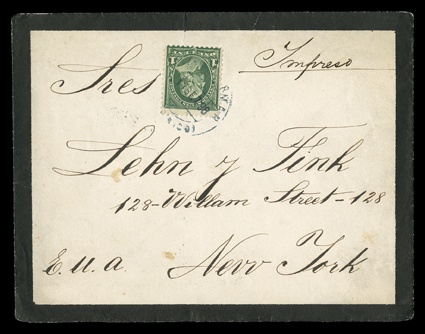 Impreso
Sres
Lehn y Fink
128-William Street-128
E.U.a New York